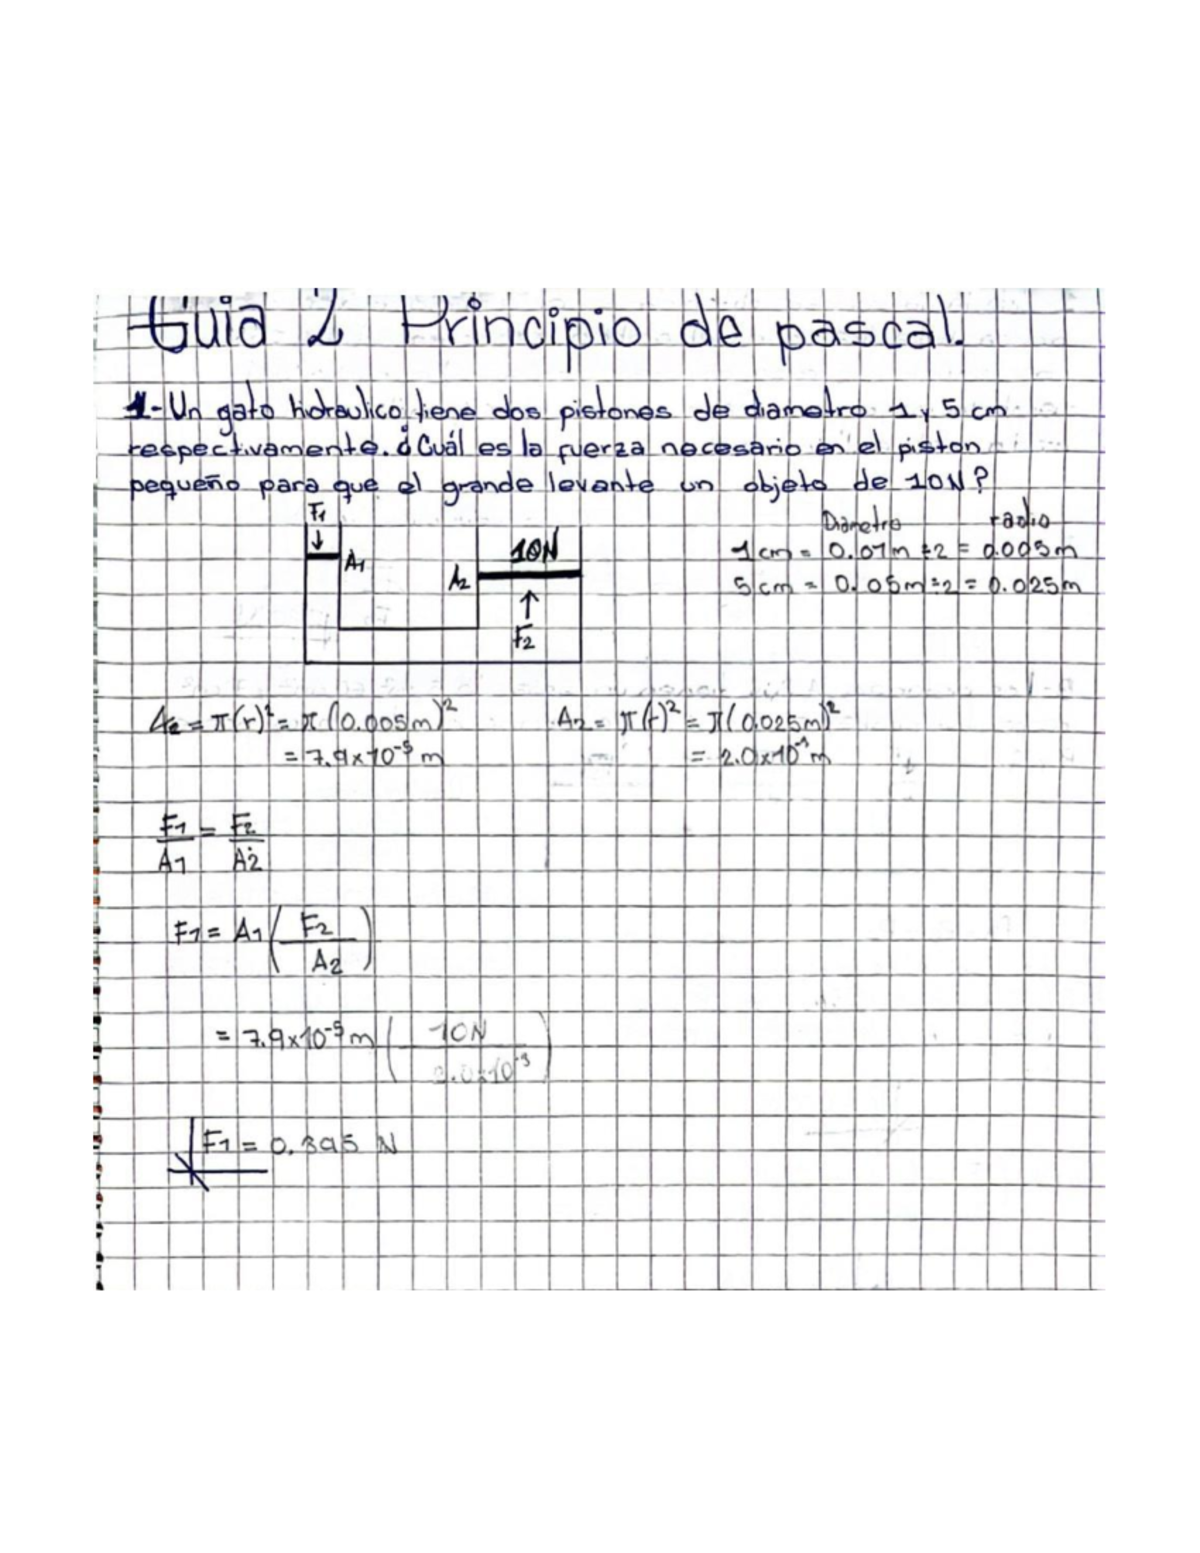 Guia 2 Principio de pascal.
1-Un gato hidraulico tiene dos pistones de diametro 1 y 5 cm
respectivamente. ¿Cuál es la fuerza necesario en el piston
pequeño para que el grande levante un objeto de 10N?
F1
Diametro radio
A1 10N 1 cm = 0.01m ÷2 = 0.005m
A2 5 cm = 0.05m ÷2 = 0.025m
F2
= π(r)² = π(0.005m)² A2 = π(r)² = π(0.025m)²
= 7.9x10⁻⁵ m = 2.0x10 m
F1 = F2
A1 A2
F1 = A1 ( F2
A2 )
= 7.9x10⁻⁵ m ( 10N
2.0x10⁻³ )
F1 = 0.395 N